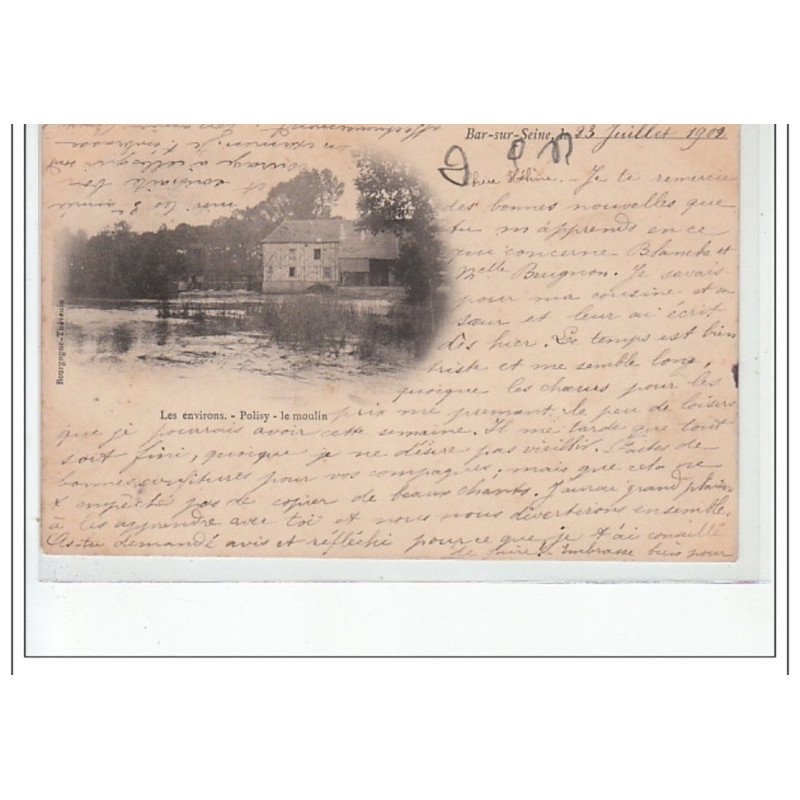 Bar-sur-Seine, le 23 Juillet 1902
Chère Hélène. - Je te remercie
des bonnes nouvelles que
tu m'apprends en ce
qui concerne Blanche et
Melle Brugnon. Je savais
pour ma cousine et sa
sœur et leur ai écrit
dès hier. Le temps est bien
triste et me semble long,
quoique les chœurs pour les
prix me prennent le peu de loisirs
que je pourrais avoir cette semaine. Il me tarde que tout
soit fini, quoique je ne désire pas vieillir. Faites de
bonnes confitures pour vos compagnes, mais que cela ne
t'empêche pas de copier de beaux chants. J'aurai grand plaisir
à les apprendre avec toi et nous nous divertirons ensemble.
As-tu demandé avis et réfléchi pour ce que je t'ai conseillé
de faire. Embrasse bien pour
moi les 3e année
et
courage à celles qui vont
Bourgogne-Thévenin
Les environs. - Polisy - le moulin